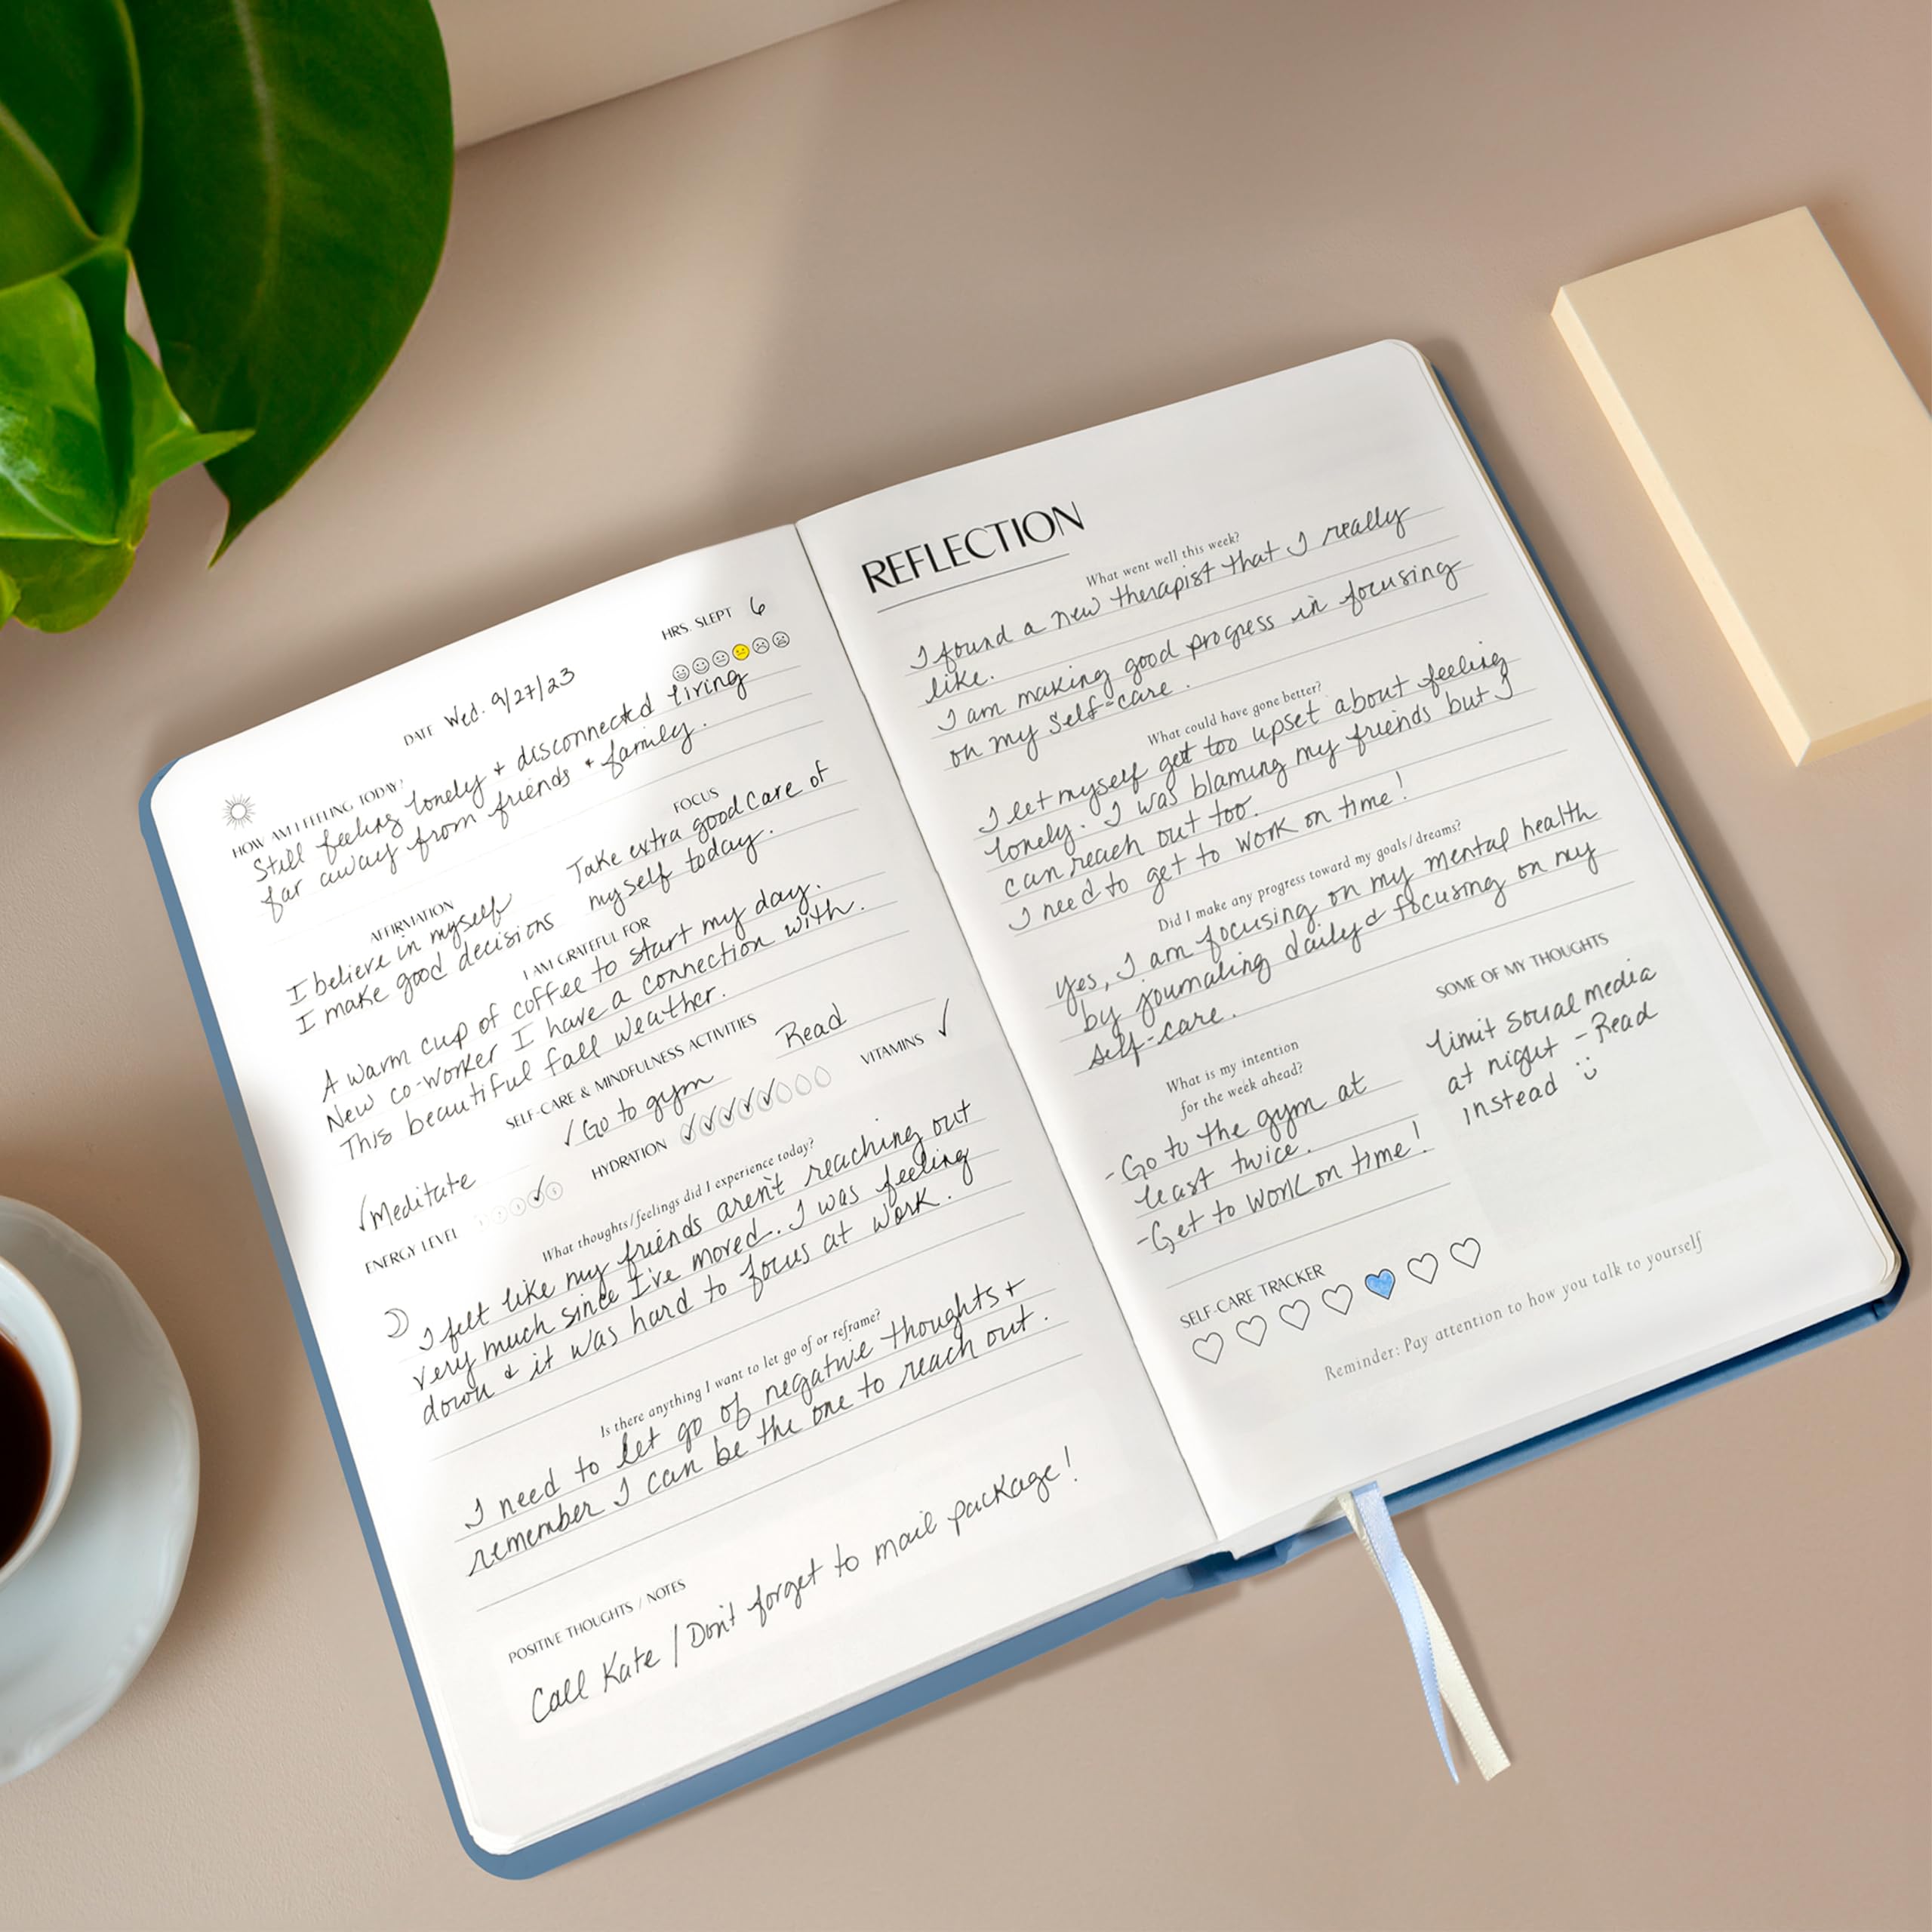 DATE Wed. 9/27/23
HRS. SLEPT 6
HOW AM I FEELING TODAY?
Still feeling lonely + disconnected living
far away from friends + family.
AFFIRMATION
I believe in myself
I make good decisions
FOCUS
Take extra good care of
myself today.
I AM GRATEFUL FOR
A warm cup of coffee to start my day.
New co-worker I have a connection with.
This beautiful fall weather.
SELF-CARE & MINDFULNESS ACTIVITIES
✓Meditate
✓Go to gym
Read
ENERGY LEVEL
HYDRATION
VITAMINS ✓
What thoughts/feelings did I experience today?
I felt like my friends aren't reaching out
very much since I've moved. I was feeling
down & it was hard to focus at work.
Is there anything I want to let go of or reframe?
I need to let go of negative thoughts +
remember I can be the one to reach out.
POSITIVE THOUGHTS / NOTES
Call Kate / Don't forget to mail package!
REFLECTION
What went well this week?
I found a new therapist that I really
like.
I am making good progress in focusing
on my self-care.
What could have gone better?
I let myself get too upset about feeling
lonely. I was blaming my friends but I
can reach out too.
I need to get to work on time!
Did I make any progress toward my goals/dreams?
Yes, I am focusing on my mental health
by journaling daily & focusing on my
self-care.
What is my intention
for the week ahead?
-Go to the gym at
least twice.
-Get to work on time!
SOME OF MY THOUGHTS
limit social media
at night - Read
instead :)
SELF-CARE TRACKER
Reminder: Pay attention to how you talk to yourself